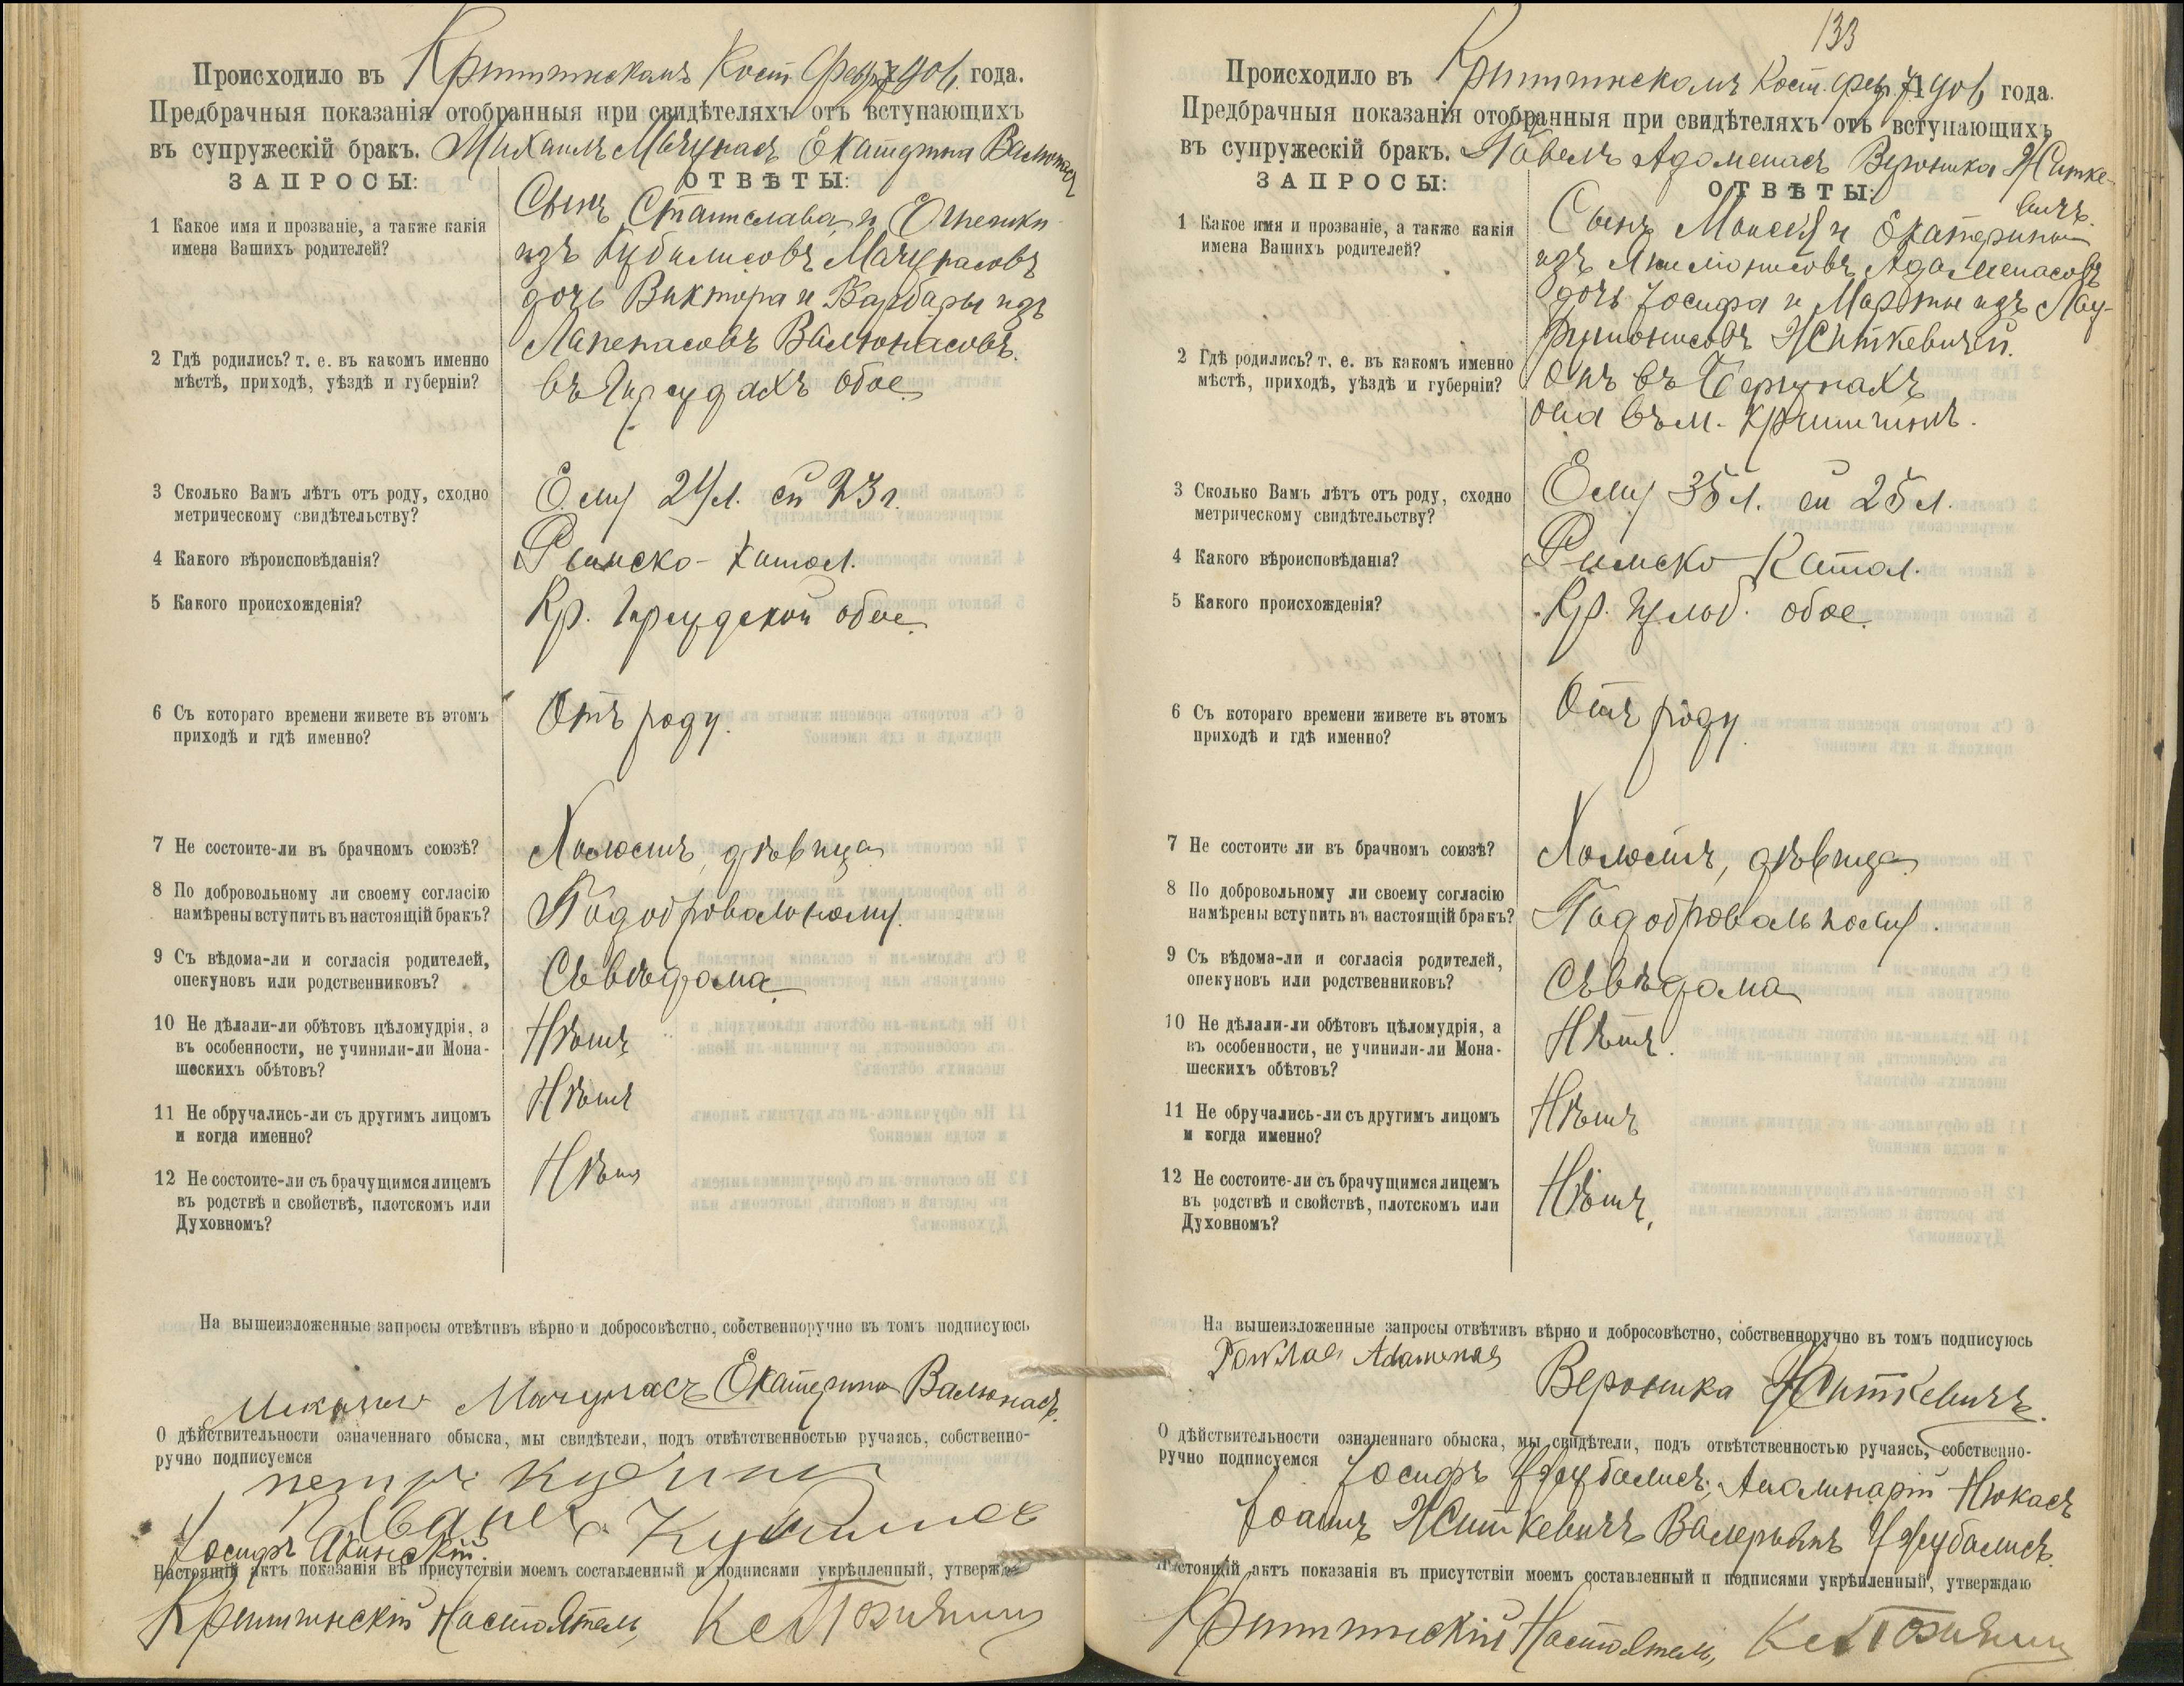 Происходило въ Криттинскомъ Кост. Февр. 7 1901 года.
Предбрачныя показанія отобранныя при свидѣтеляхъ отъ вступающихъ
въ супружескій бракъ. Михаилъ Мачунасъ Екатерина Валюнасъ
ЗАПРОСЫ: ОТВѢТЫ:
1 Какое имя и прозваніе, а также какія
имена Вашихъ родителей?
Сынъ Станислава и Огнешки
изъ Кубилисовъ Мачунасовъ
дочь Виктора и Варбары изъ
Лапенасовъ Валюнасовъ.
2 Гдѣ родились? т. е. въ какомъ именно
мѣстѣ, приходѣ, уѣздѣ и губерніи?
обое
3 Сколько Вамъ лѣтъ отъ роду, сходно
метрическому свидѣтельству?
Ему 24 л. ей 23 г.
4 Какого вѣроисповѣданія?
Римско-Катол.
5 Какого происхожденія?
Кр. обое
6 Съ котораго времени живете въ этомъ
приходѣ и гдѣ именно?
Отъ роду.
7 Не состоите-ли въ брачномъ союзѣ?
Холостъ, дѣвица
8 По добровольному ли своему согласію
намѣрены вступить въ настоящій бракъ?
По добровольному.
9 Съ вѣдома-ли и согласія родителей,
опекуновъ или родственниковъ?
Съ вѣдома
10 Не дѣлали-ли обѣтовъ цѣломудрія, а
въ особенности, не учинили-ли Мона-
шескихъ обѣтовъ?
Нѣтъ
11 Не обручались-ли съ другимъ лицомъ
и когда именно?
Нѣтъ
12 Не состоите-ли съ брачущимся лицемъ
въ родствѣ и свойствѣ, плотскомъ или
Духовномъ?
Нѣтъ
На вышеизложенные запросы отвѣтивъ вѣрно и добросовѣстно, собственноручно въ томъ подписуюсь
Мачунасъ Екатерина Валюнасъ.
О дѣйствительности означеннаго обыска, мы свидѣтели, подъ отвѣтственностью ручаясь, собственно-
ручно подписуемся
петръ
Іосифъ
Настоящій актъ показанія въ присутствіи моемъ составленный и подписами укрѣпленный, утверж
Криттинскій Настоятель,
133
Происходило въ Криттинскомъ Кост. Февр. 7 1901 года.
Предбрачныя показанія отобранныя при свидѣтеляхъ отъ вступающихъ
въ супружескій бракъ. Павелъ Адоменасъ Вероника Житке-
вичъ.
ЗАПРОСЫ: ОТВѢТЫ:
1 Какое имя и прозваніе, а также какія
имена Вашихъ родителей?
Сынъ Моисея и Екатерины
изъ Адоменасовъ
дочь Іосифа и Марты изъ Лау-
Житкевичей.
2 Гдѣ родились? т. е. въ какомъ именно
мѣстѣ, приходѣ, уѣздѣ и губерніи?
Онъ въ
она въ м.
3 Сколько Вамъ лѣтъ отъ роду, сходно
метрическому свидѣтельству?
Ему 35 л. ей 25 л.
4 Какого вѣроисповѣданія?
Римско Катол.
5 Какого происхожденія?
Кр. обое
6 Съ котораго времени живете въ этомъ
приходѣ и гдѣ именно?
Отъ роду.
7 Не состоите ли въ брачномъ союзѣ?
Холостъ, дѣвица
8 По добровольному ли своему согласію
намѣрены вступить въ настоящій бракъ?
По добровольному.
9 Съ вѣдома-ли и согласія родителей,
опекуновъ или родственниковъ?
Съ вѣдома
10 Не дѣлали-ли обѣтовъ цѣломудрія, а
въ особенности, не учинили-ли Мона-
шескихъ обѣтовъ?
Нѣтъ.
11 Не обручались-ли съ другимъ лицомъ
и когда именно?
Нѣтъ
12 Не состоите-ли съ брачущимся лицемъ
въ родствѣ и свойствѣ, плотскомъ или
Духовномъ?
Нѣтъ,
На вышеизложенные запросы отвѣтивъ вѣрно и добросовѣстно, собственноручно въ томъ подписуюсь
Adamenas Вероника Житкевичъ.
О дѣйствительности означеннаго обыска, мы свидѣтели, подъ отвѣтственностью ручаясь, собственно-
ручно подписуемся Іосифъ
Іоаннъ Житкевичъ Валерьянъ
Настоящій актъ показанія въ присутствіи моемъ составленный и подписями укрѣпленный, утверждаю
Криттинскій Настоятель,